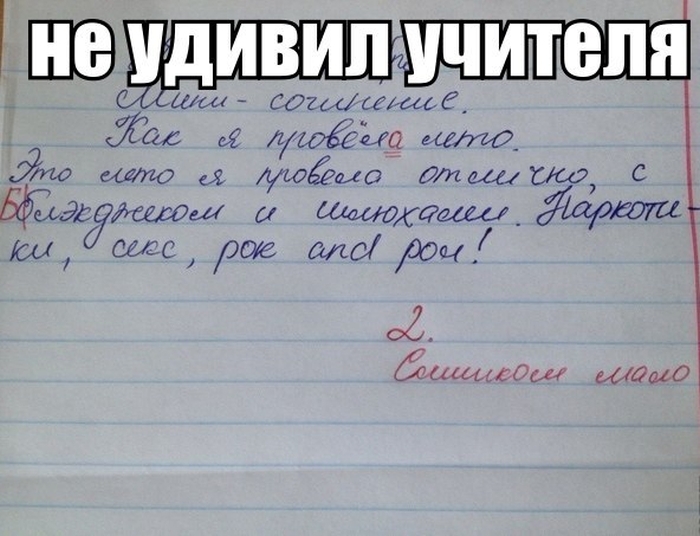 не удивил учителя
Мини-сочинение.
Как я провёла лето.
Это лето я провела отлично, с
Б блэкджеком и шлюхами. Наркоти-
ки, секс, рок and рол!
2.
Слишком мало